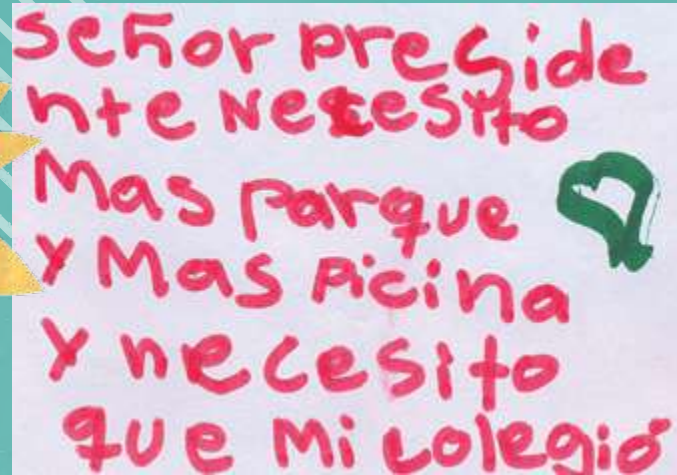 señor preside
nte Necesito
Mas parque
y Mas picina
y necesito
que mi colegio